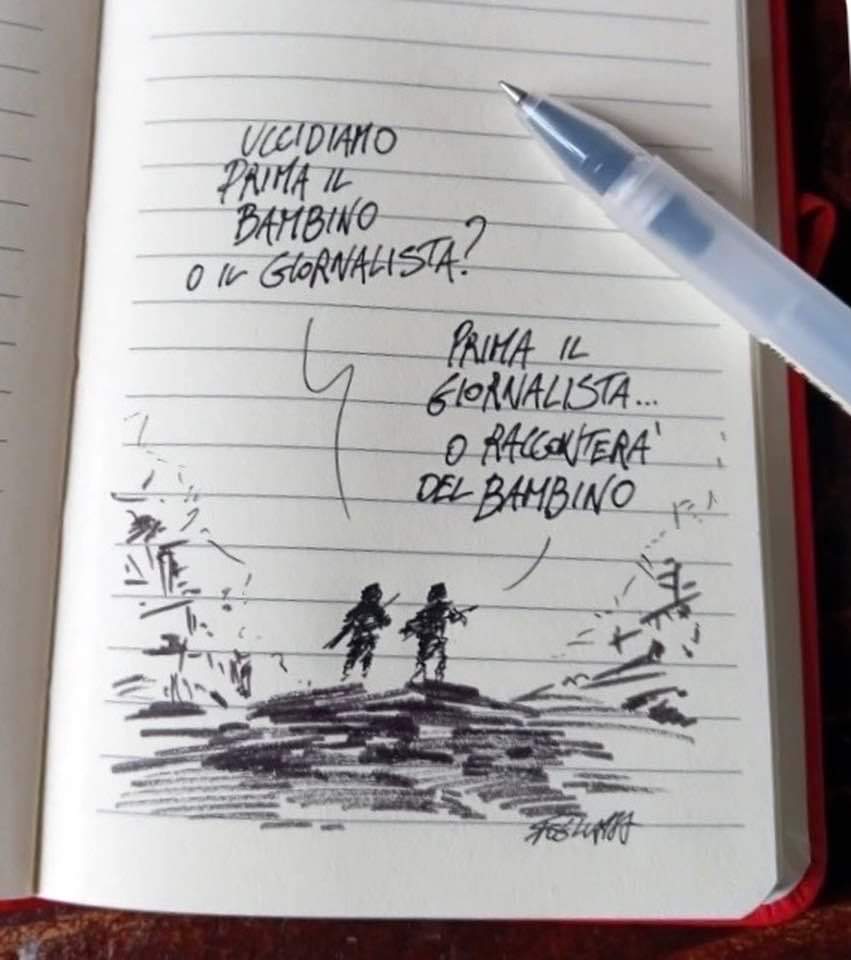 UCCIDIAMO
PRIMA IL
BAMBINO
O IL GIORNALISTA?
PRIMA IL
GIORNALISTA...
O RACCONTERA'
DEL BAMBINO